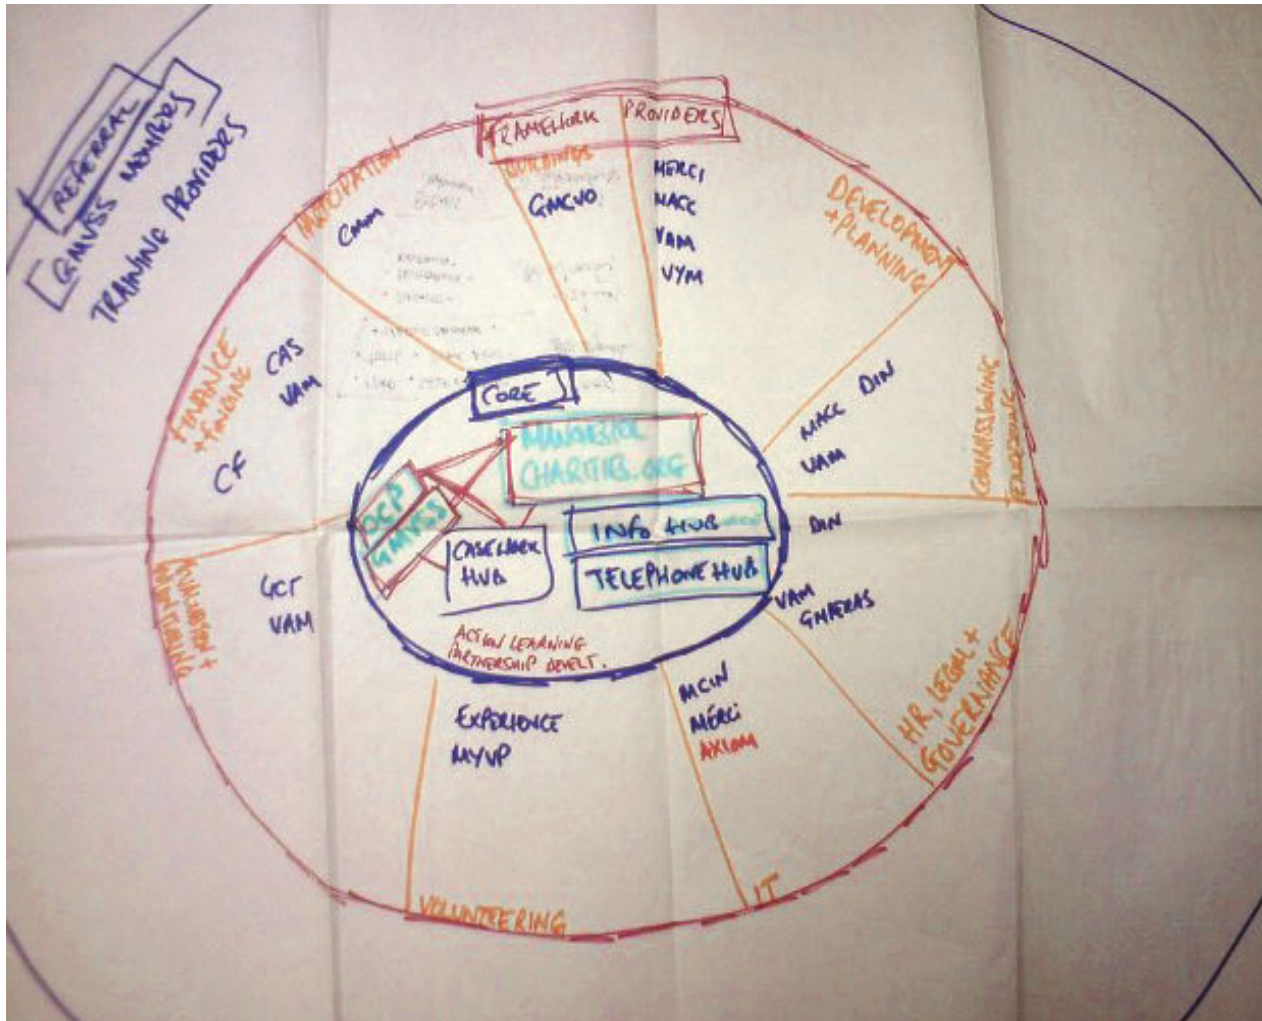 REFERRAL
GMVSS MEMBERS
TRAINING PROVIDERS
FRAMEWORK PROVIDERS
PARTICIPATION
CMM
BUILDINGS
GMCVO
MERCI
MACC
VAM
VYM
DEVELOPMENT
+ PLANNING
DIN
MACC
VAM
COMMISSIONING
DIN
VAM
GMPERAS
HR, LEGAL +
GOVERNANCE
MCIN
MERCi
AXIOM
IT
EXPERIENCE
MYVP
VOLUNTEERING
GCT
VAM
EVALUATION +
MONITORING
FINANCE
+ FUNDING
CAS
VAM
CF
CORE
MANCHESTER
CHARITIES.ORG
OCP
GMVSS
CASEWORK
HUB
INFO HUB
TELEPHONE HUB
ACTION LEARNING
PARTNERSHIP DEVELT.